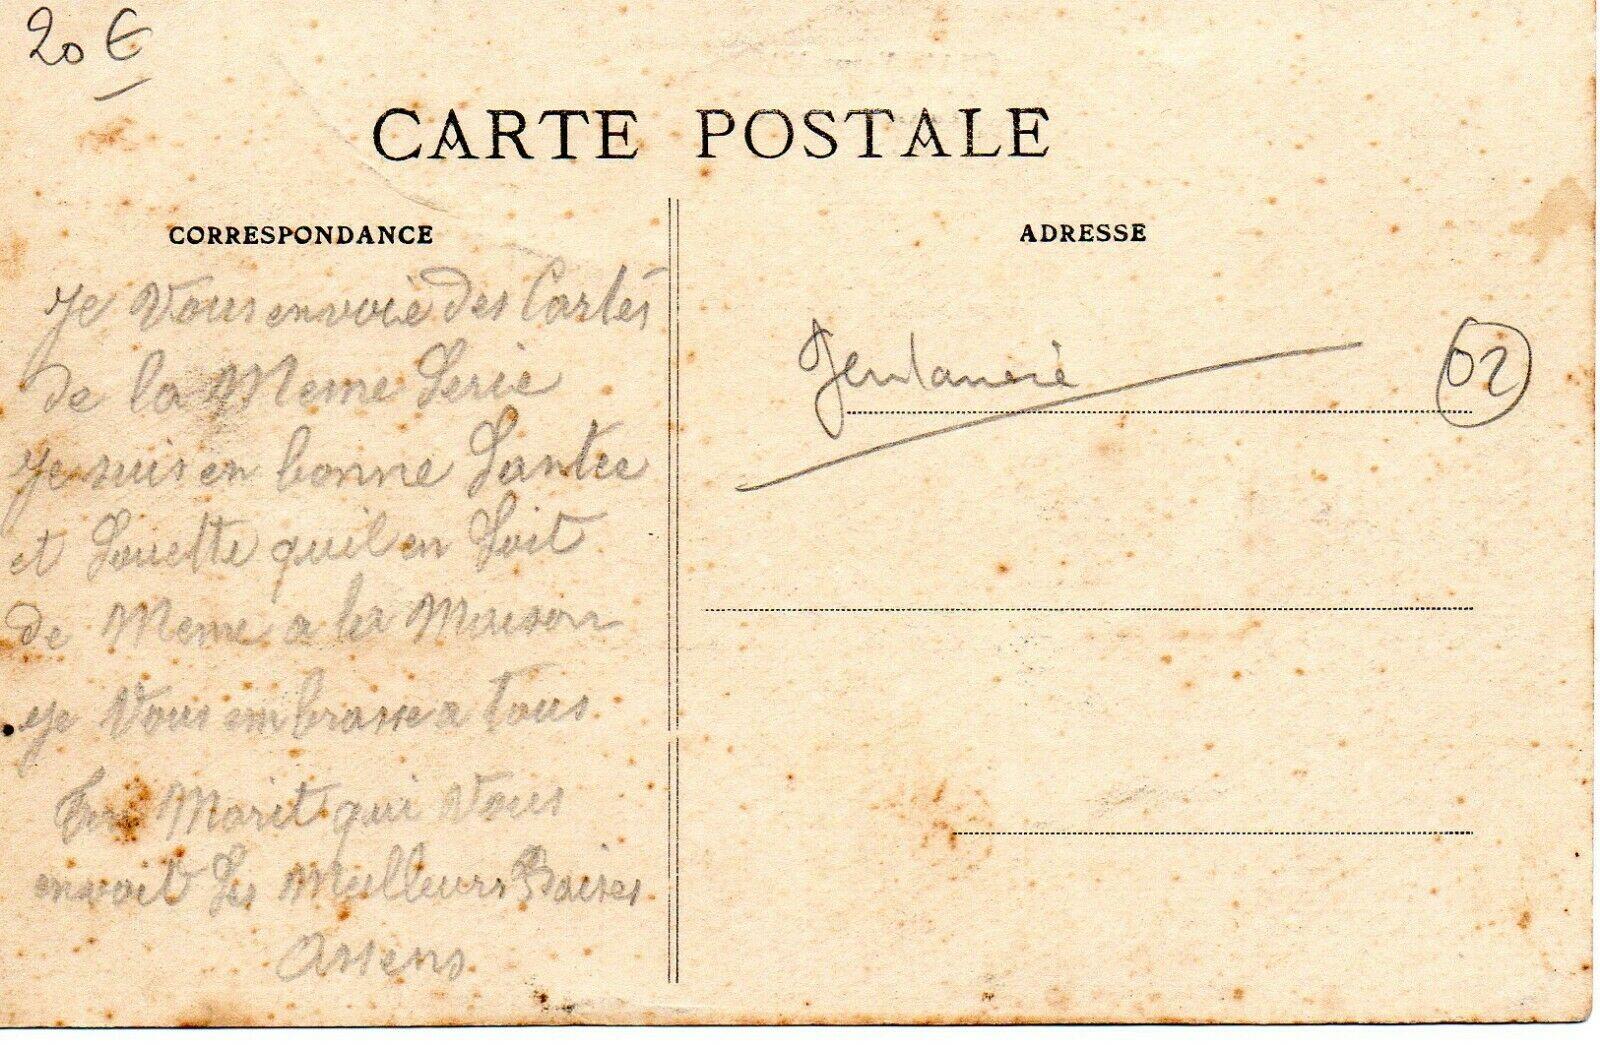 20 €
CARTE POSTALE
CORRESPONDANCE
Je Vous envoie des Cartés
de la Meme Serie
Je suis en bonne Santee
et Souette quil en Soit
de Meme a la Maison
Je Vous embrasse a Tous
Marit qui Vous
envoit Ses Meilleurs Baises
Arsens
ADRESSE
02